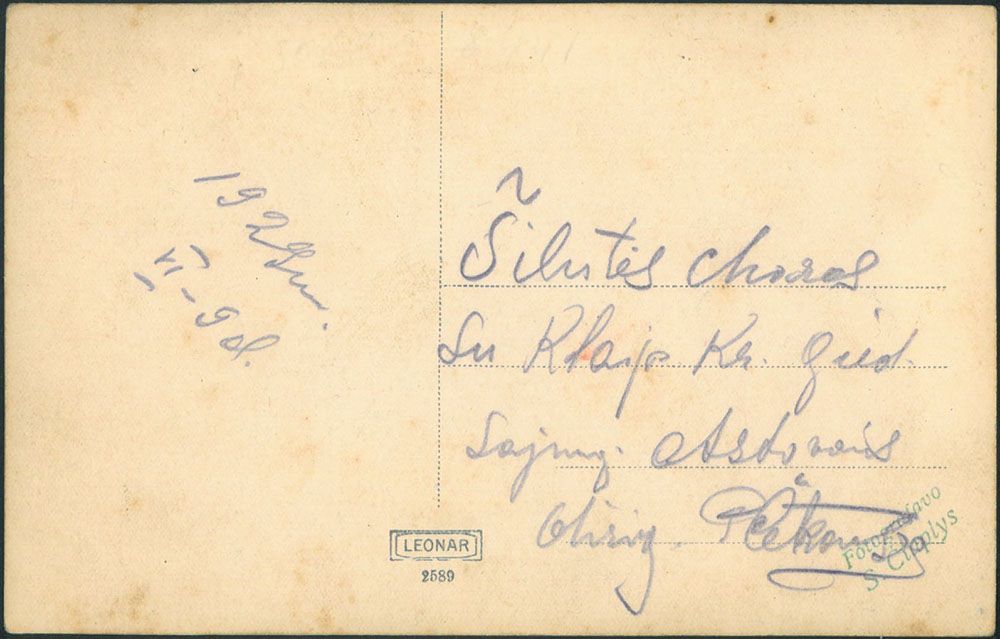 1929 m.
VI – 9 d.
Šilutės choras
su Klaip. Kr. Gied.
Sąjung. Astovais
Dirig.
LEONAR
2589
Fotografavo
S. Čiuplys